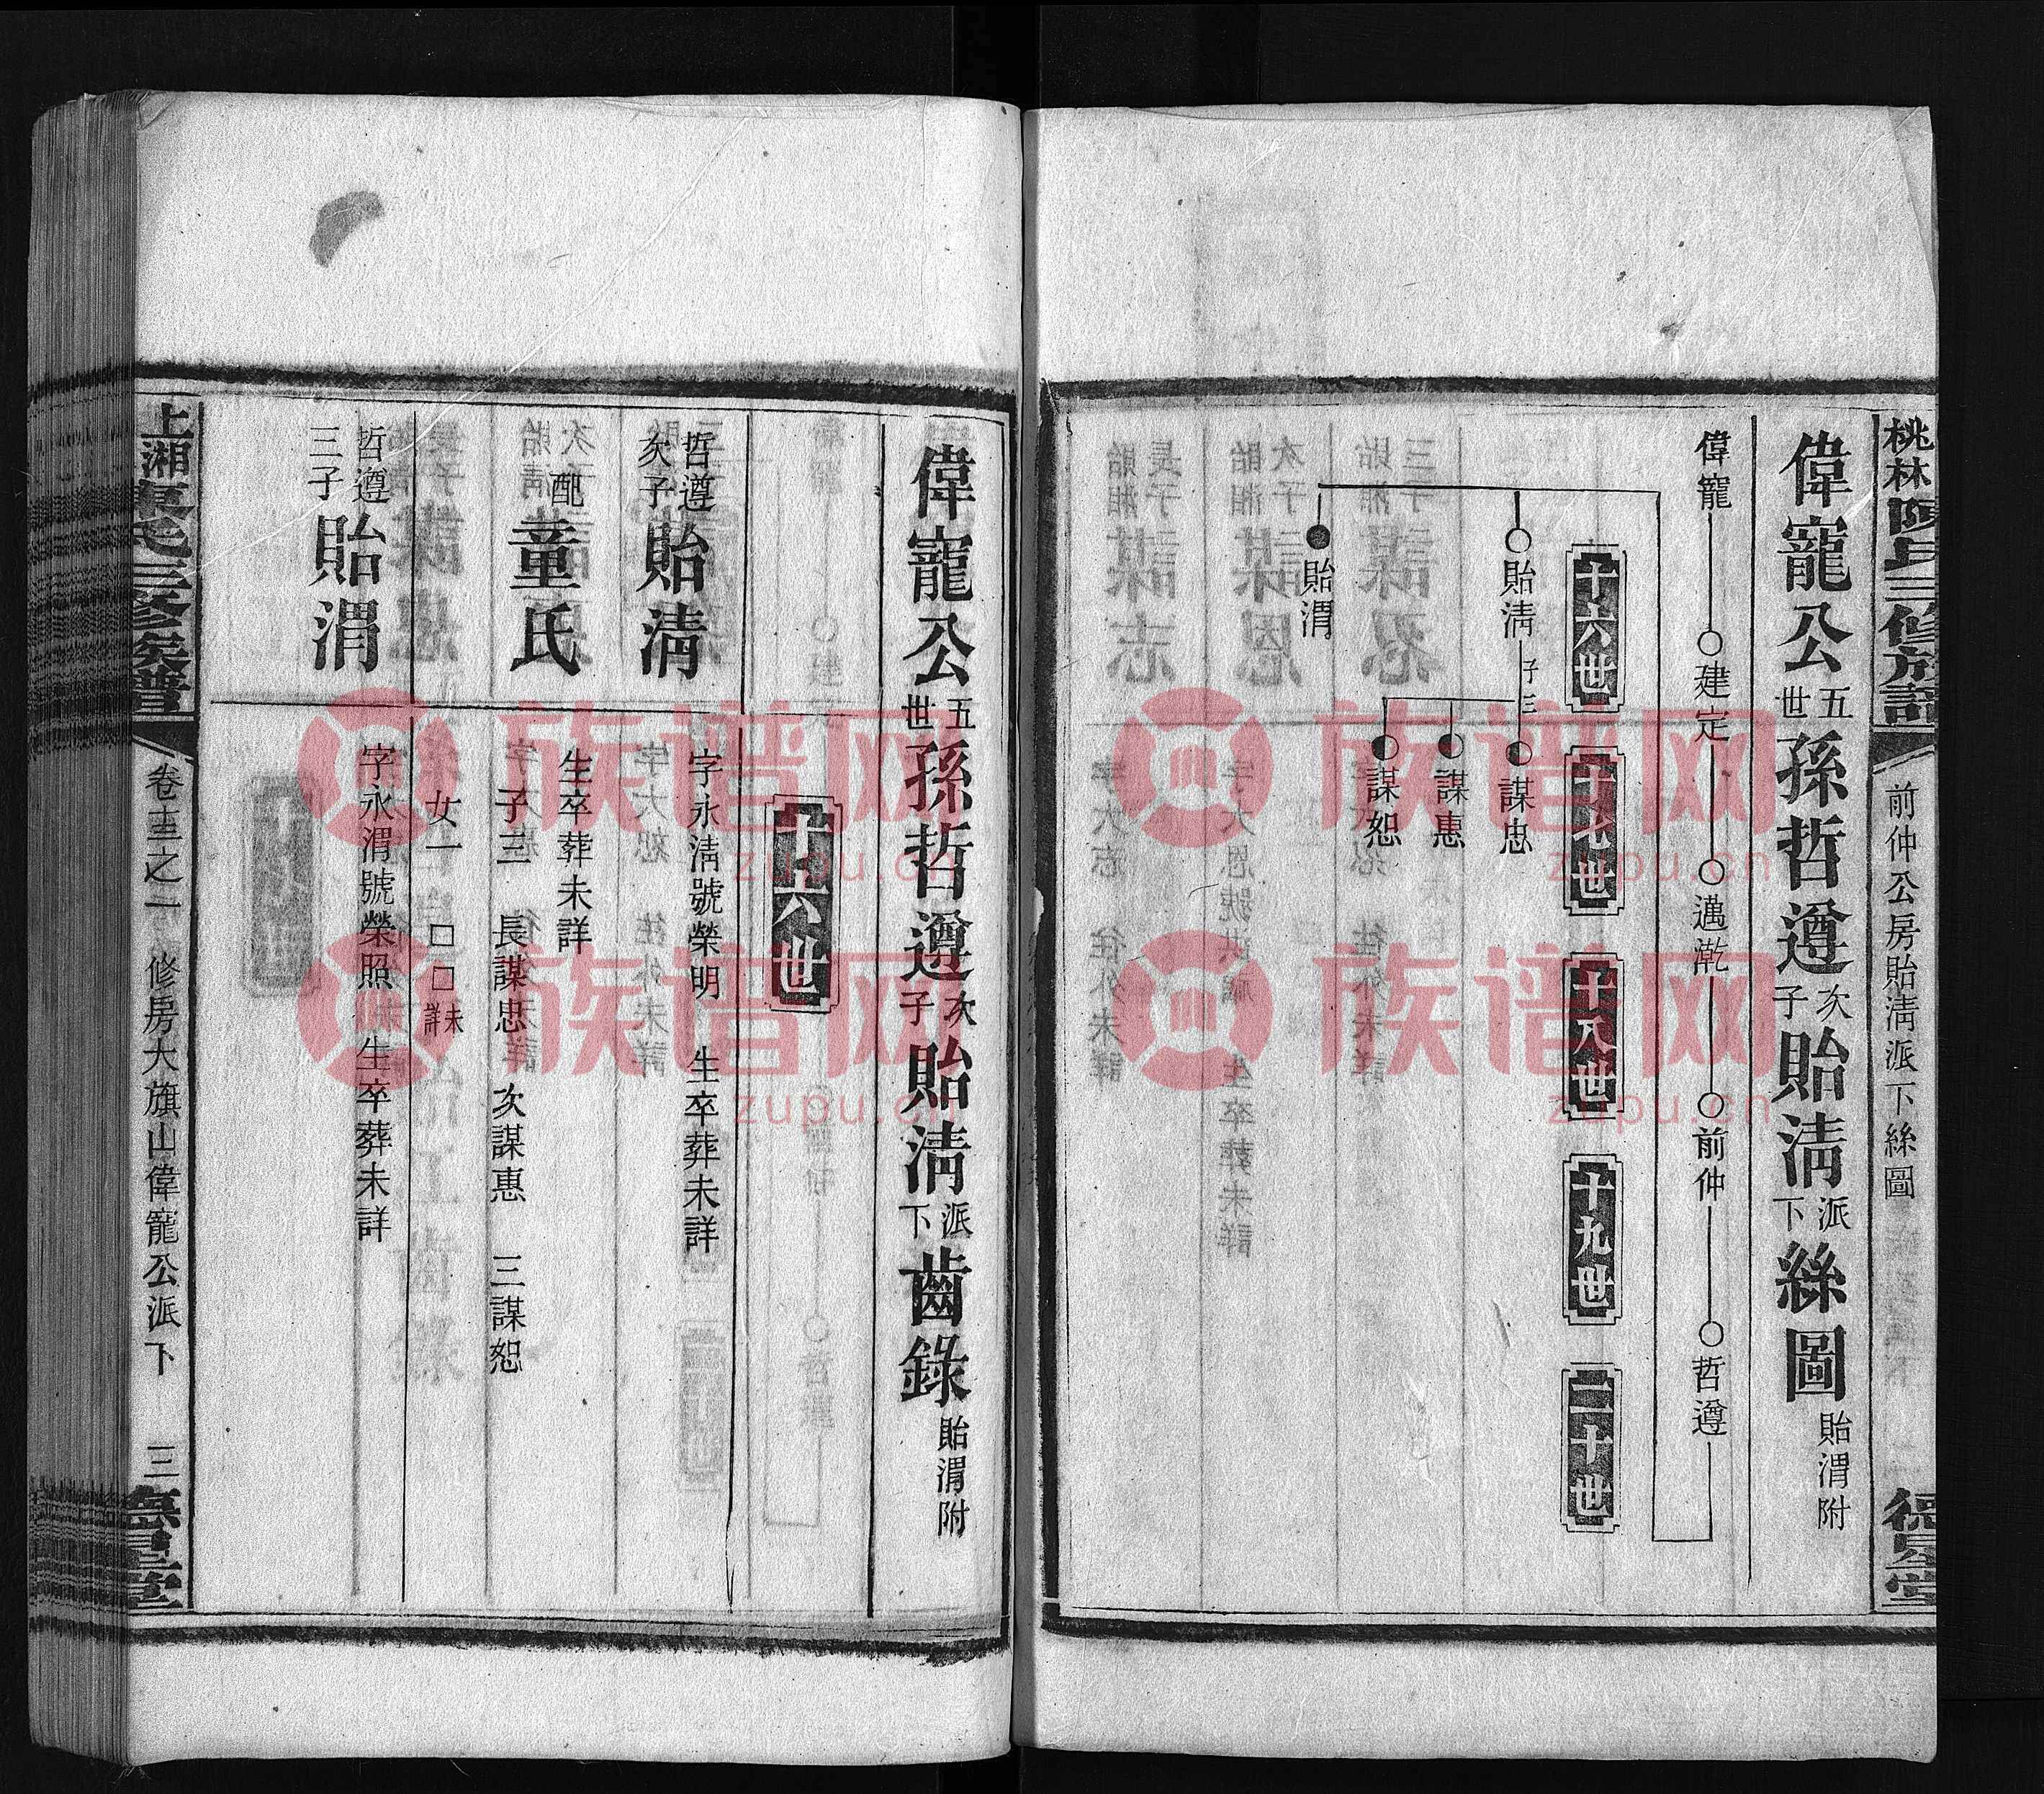 桃林陳氏三修族譜
前仲公房貽清派下絲圖
德星堂
偉寵公五世孫哲遵次子貽清派下絲圖貽渭附
偉寵 建定 邁乾 前仲 哲遵
十六世 十七世 十八世 十九世 二十世
貽清 子三 謀忠
謀惠
謀恕
貽渭
偉寵公五世孫哲遵次子貽清派下齒錄貽渭附
十六世
哲遵次子 貽清
字永清號榮明 生卒葬未詳
配童氏
生卒葬未詳
子三 長謀忠 次謀惠 三謀恕
女一 □□未詳
哲遵三子 貽渭
字永渭號榮照 生卒葬未詳
上湘
三修族譜
卷十三之一 修房大旗山偉寵公派下
三
族谱网
zupu.cn
族谱网
zupu.cn
族谱网
zupu.cn
族谱网
zupu.cn